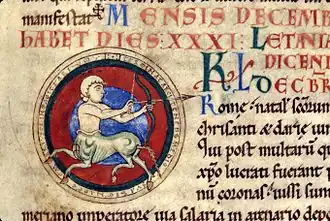 manifestat
MENSIS DECEMB
HABET DIES: XXXI: LETANIA
DICEND
KL DECBR
Rome. natal. scõrum
chrisanti & darie uir
Qui post multarũ qua
xpo lucrati fuerant p
nũ coronas. iussi sunt
meriano imperatore uia salaria in arenario depo